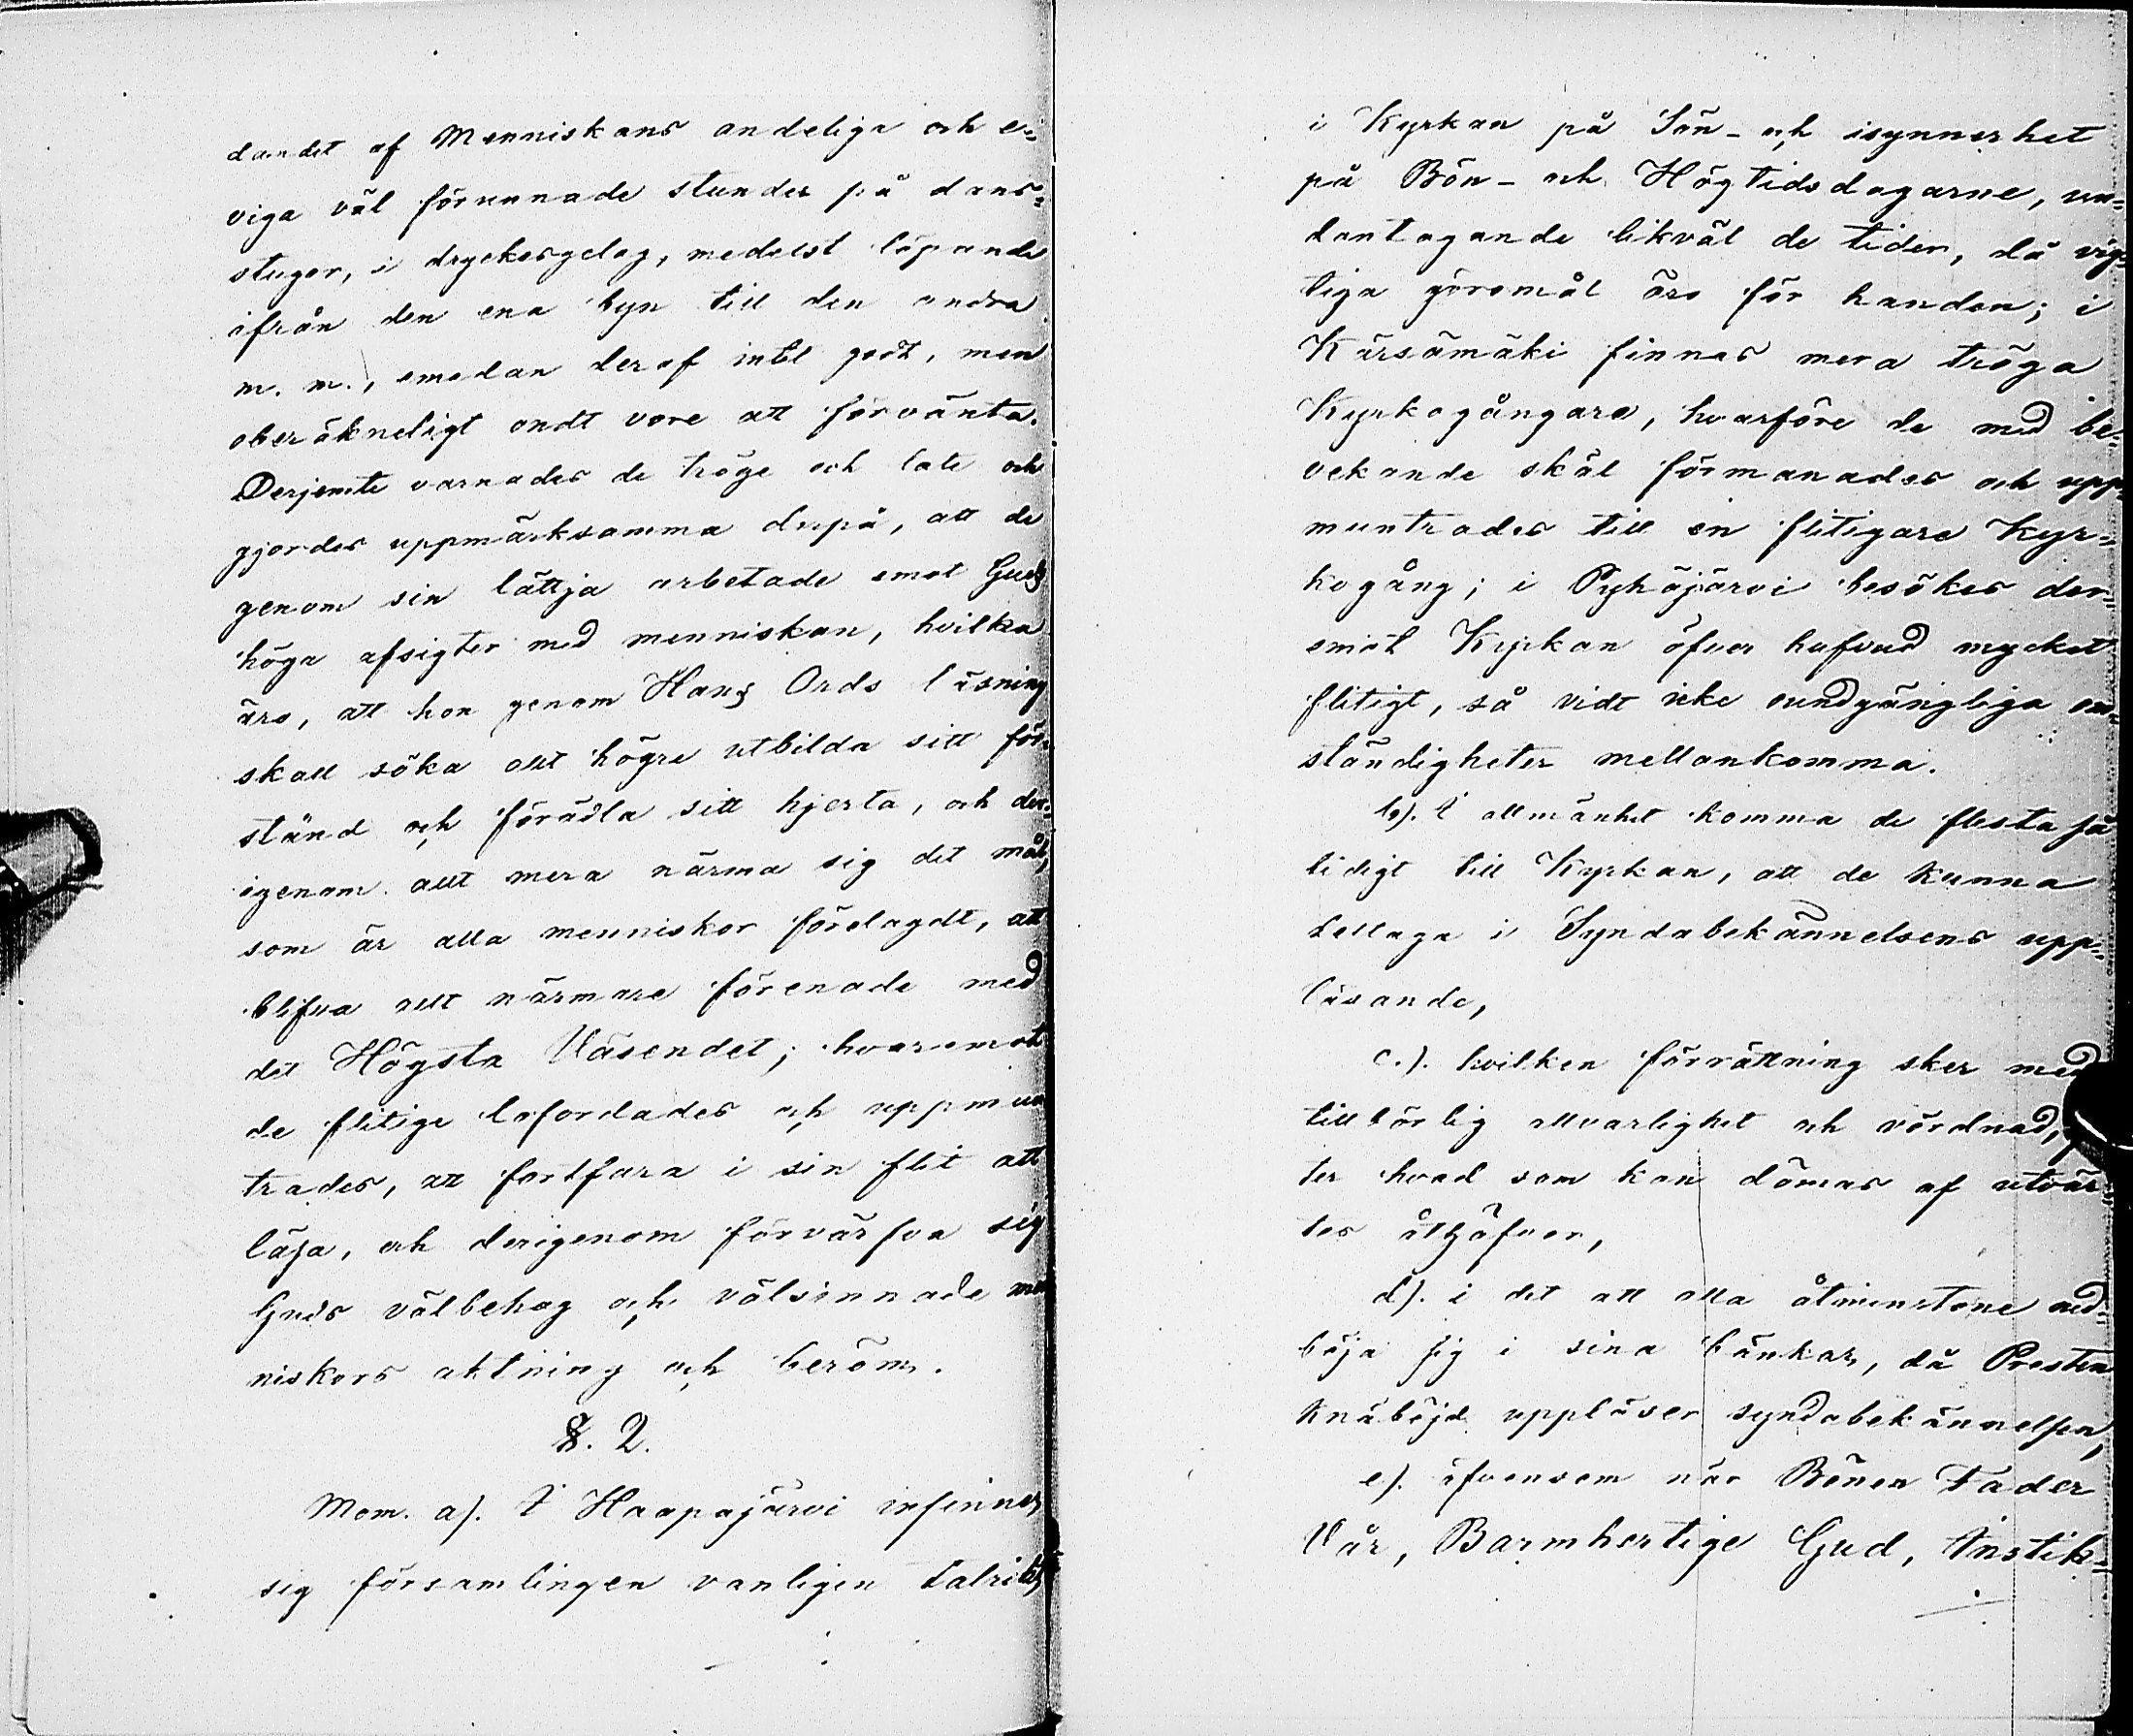 dandet af Menniskans andeliga och e=
viga väl förunnade stunder på dans=
stugor, i dryckesgelag, medelst löpande
ifrån den ena byn till den andra
m. m., emedan deraf intet godt, men
oberäkneligt ondt vore att förvänta.
Derjemte varnades de tröge och late och
gjordes uppmärksamma derpå, att de
genom sin lättja arbetade emot Guds
höga afsigter med menniskan, hvilka
äro, att hon genom Hans Ords läsning
skall söka allt högre utbilda sitt för=
stånd och förädla sitt hjerta, och der=
igenom allt mera närma sig det mål,
som är alla menniskor förelagdt, att
blifva allt närmare förenade med
det Högsta Väsendet; hvaremot
de flitige lofordades och uppmun
trades, att fortfara i sin flit att
läsa, och derigenom förvärfva sig
Guds välbehag och välsinnade men
niskors aktning och beröm.
§. 2.
Mom. a). I Haapajärvi infinner
sig församlingen vanligen talrikt
i Kyrkan på Sön- och isynnerhet
på Bön- och Högtidsdagarne, un=
dantagande likväl de tider, då vig=
tiga göromål äro för handen; i
Kärsämäki finnas mera tröga
Kyrkogångare, hvarföre de med be=
vekande skäl förmanades och upp=
muntrades till en flitigare Kyr=
kogång; i Pyhäjärvi besökes der=
emot Kyrkan öfver hufvud mycket
flitigt, så vidt icke oundgängliga om=
ständigheter mellankomma.
b). I allmänhet komma de flesta så
tidigt till Kyrkan, att de kunna
deltaga i Syndabekännelsens upp=
läsande,
c.). hvilken förrättning sker med
tillbörlig allvarlighet och vördnad,
ter hvad som kan dömas af utvär
tes åthäfvor,
d). i det att alla åtminstone ned=
böja sig i sina bänkar, då Presten
knäböjd uppläser syndabekännelsen,
e). äfvensom när Bönen Fader
Vår, Barmhertige Gud, Instik=